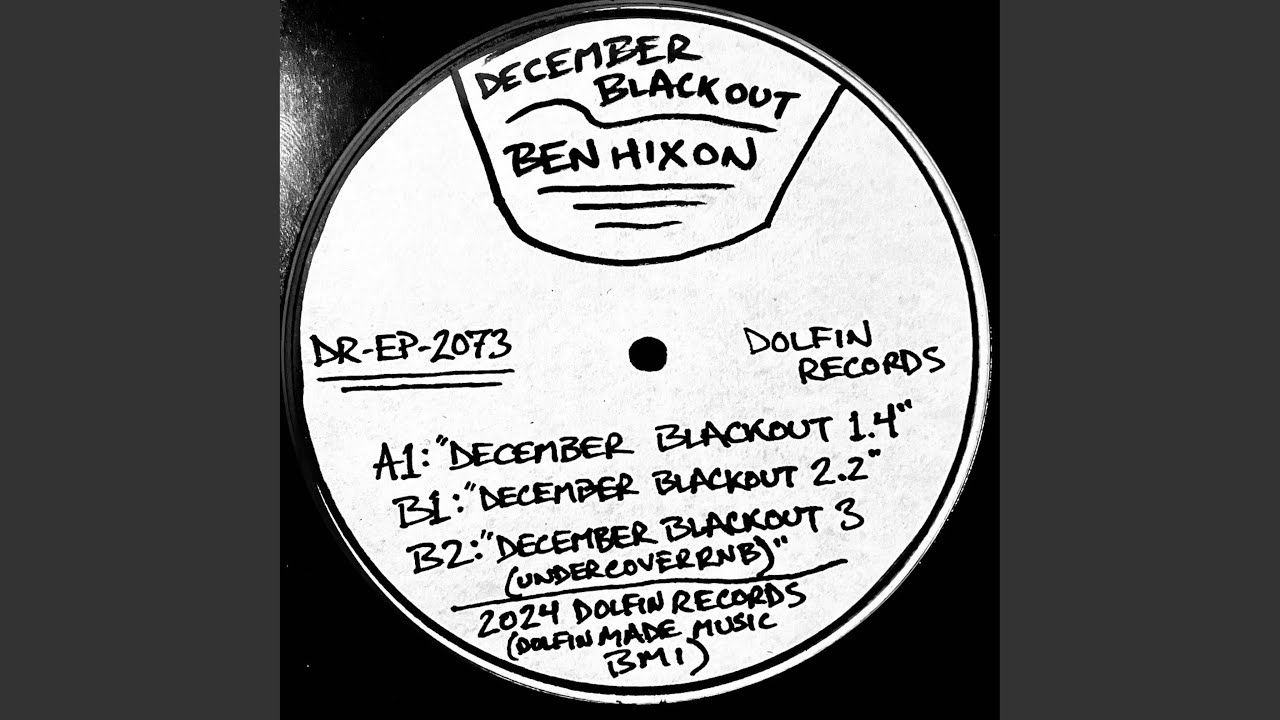 DECEMBER
BLACKOUT
BEN HIXON
DR-EP-2073
DOLFIN
RECORDS
A1: "DECEMBER BLACKOUT 1.4"
B1: "DECEMBER BLACKOUT 2.2"
B2: "DECEMBER BLACKOUT 3
(UNDERCOVERRNB)"
2024 DOLFIN RECORDS
(DOLFIN MADE MUSIC
BMI)